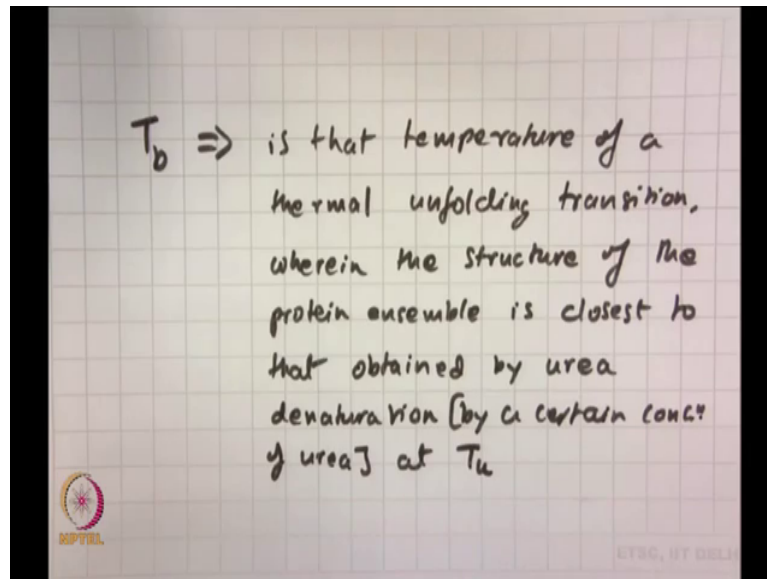 T_b ⇒ is that temperature of a
thermal unfolding transition,
wherein the structure of the
protein ensemble is closest to
that obtained by urea
denaturation [by a certain concⁿ
of urea] at T_u
NPTEL
ETSC, IIT DELHI